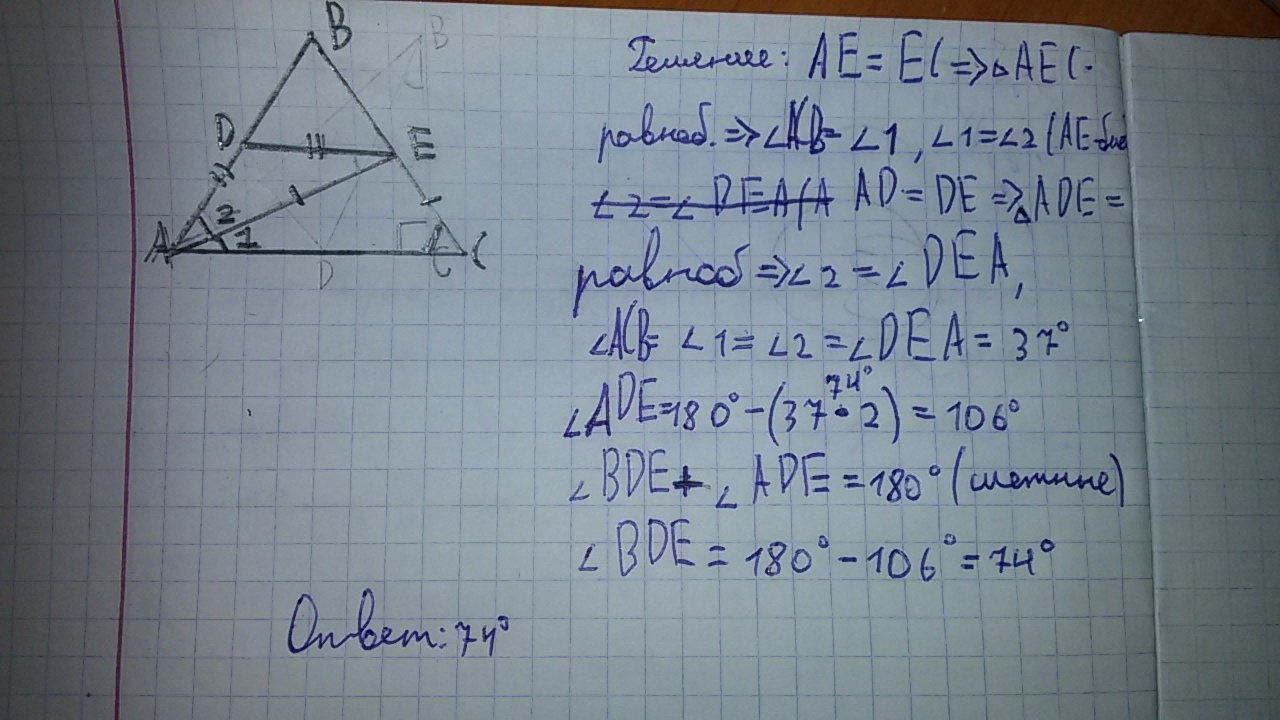 B
B
D
E
A
2
1
D
C
Решение: AE = EC => △AEC -
равноб. => ∠ACB = ∠1, ∠1 = ∠2 (AE - бис
∠2 = ∠DEA (A AD = DE => △ADE =
равноб => ∠2 = ∠DEA,
∠ACB = ∠1 = ∠2 = ∠DEA = 37°
74°
∠ADE = 180° - (37 • 2) = 106°
∠BDE + ∠ADE = 180° (смежные)
∠BDE = 180° - 106° = 74°
Ответ: 74°